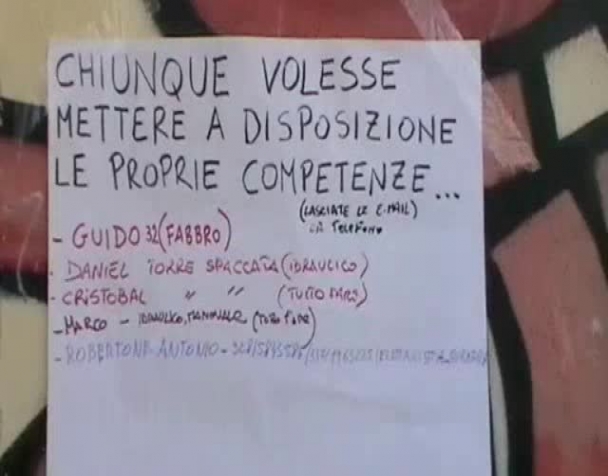 CHIUNQUE VOLESSE
METTERE A DISPOSIZIONE
LE PROPRIE COMPETENZE...
(LASCIATE LE E-MAIL)
TELEFONO
- GUIDO 32 (FABBRO)
- DANIEL TORRE SPACCATA (IDRAULICO)
- CRISTOBAL " " (TUTTO FARE)
- MARCO - IDRAULICO, MANOVALE (TUTTO FARE)
- ROBERTONE ANTONIO -